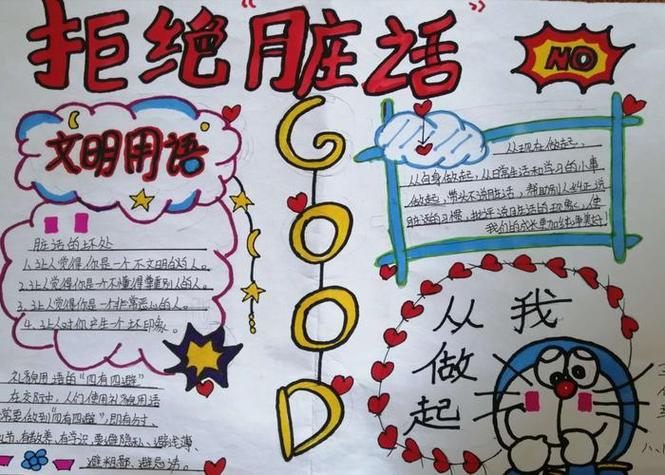 拒绝"脏话"
NO
文明用语
脏话的坏处
1.让人觉得你是一个不文明的人。
2.让人觉得你是一个不懂得尊重别人的人。
3.让人觉得你是一个非常恶心的人。
4.让人对你产生一个坏印象。
礼貌用语的"四有四避"
在交际中,人们使用礼貌用语
常要做到"四有四避",即有分寸、
有教养、有学识,要避隐私、避浅薄、
避粗鄙、避忌讳。
GOOD
从现在做起,
从自身做起,从日常生活和学习的小事
做起,带头不说脏话,帮助别人纠正说
脏话的习惯,批评说脏话的现象,使
我们的成长更加纯洁美好!
从我
做
起